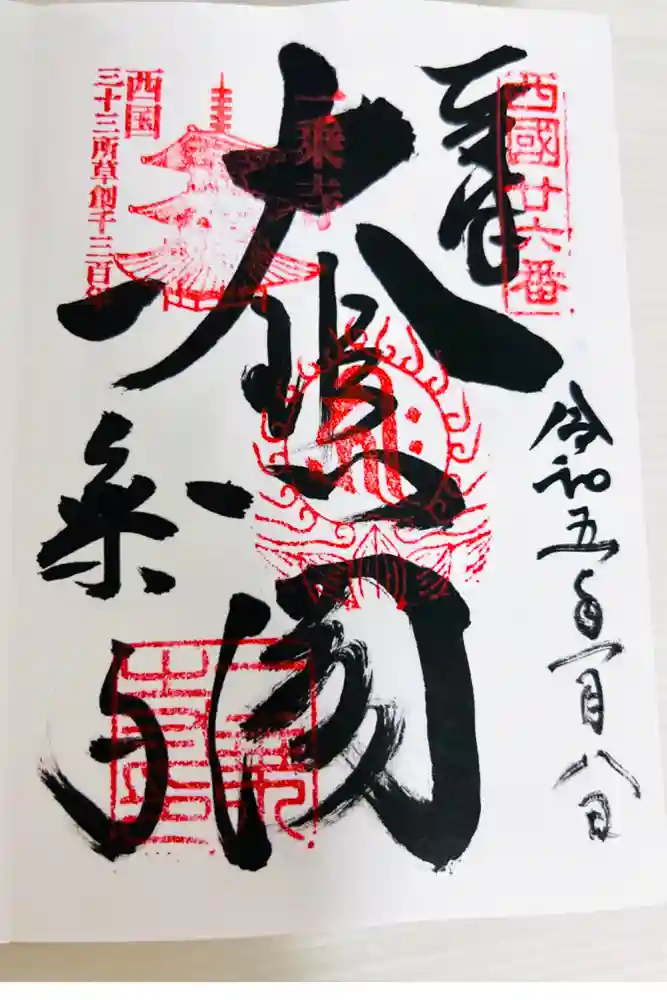 奉拝
西國廿六番
令和五年一月八日
大悲閣
一乗寺
一乗寺
西国
三十三所草創千三百年